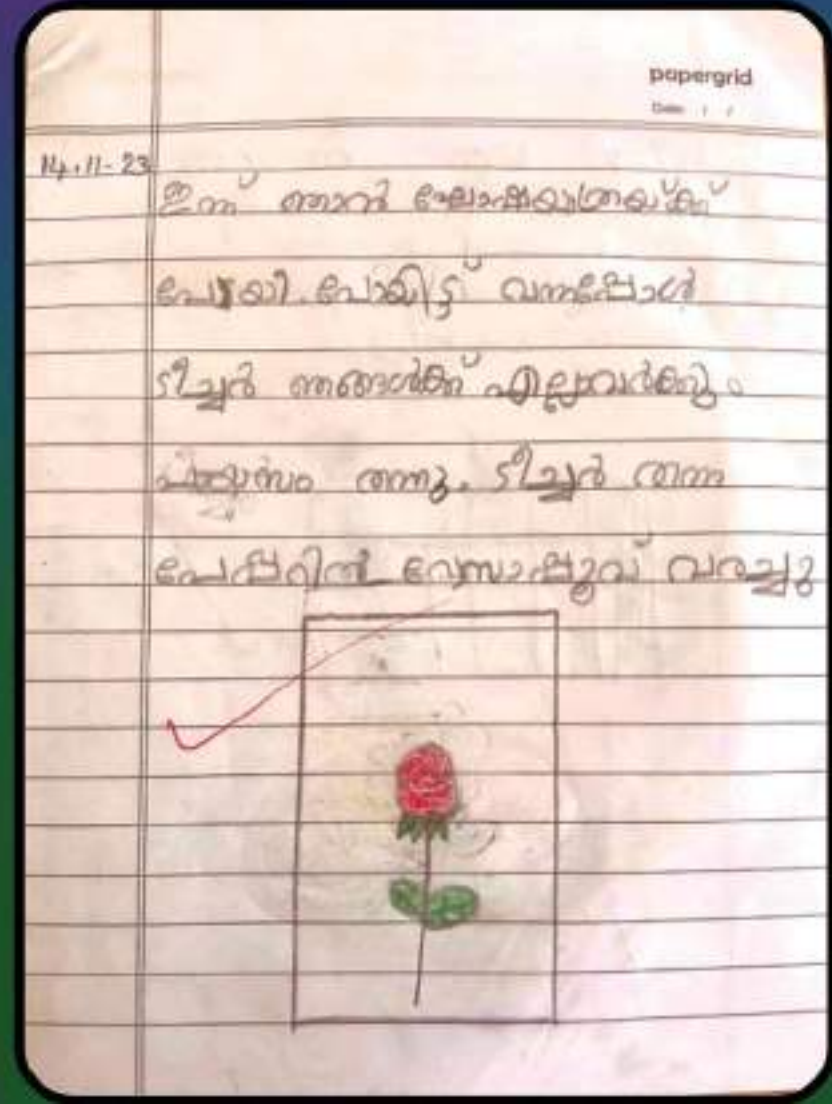 papergrid
Date: / /
14.11-23
ഇന്ന് ഞാൻ ഘോഷയാത്രയ്ക്ക്
പോയി. പോയിട്ട് വന്നപ്പോൾ
ടീച്ചർ ഞങ്ങൾക്ക് എല്ലാവർക്കും
പായസം തന്നു. ടീച്ചർ തന്ന
പേപ്പറിൽ റോസാപ്പൂവ് വരച്ചു